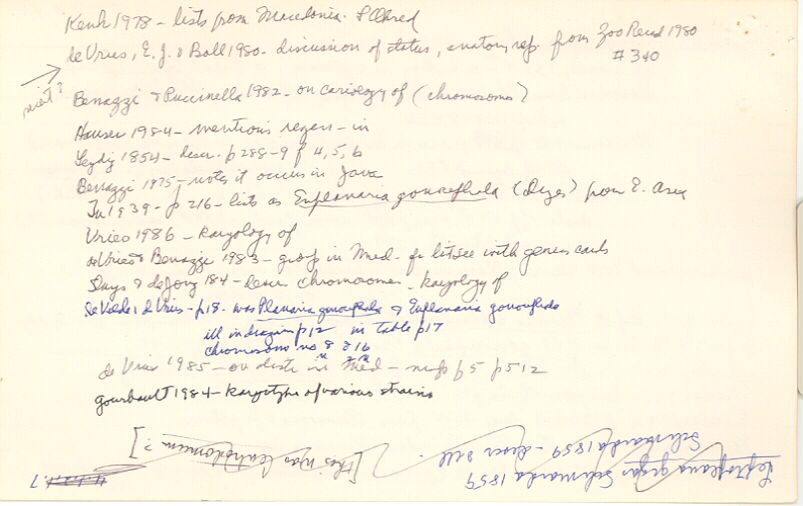 Kenk 1978 - lists from Macedonia. & Ohrid
de Vries, E. J. & Ball 1980 - discussion of status, anatomy rep. from Zoo Record 1980
# 340
Benazzi & Puccinella 1982 - on cariology of (chromosomes)
Hauser 1984 - mentions regen - in
Leydig 1854 - descr. p 288-9 f 4, 5, 6
Benazzi 1975 - notes it occurs in Java
Tu 1939 - p 216 - lists as Euplanaria gonocephala (Duges) from E. Asia
Vries 1986 - karyology of
de Vries & Benazzi 1983 - group in Med - for lit see with genus cards
Sluys & de Jong 184 - descr chromosomes - karyology of
de Vries - p18 - was Planaria gonocephala & Euplanaria gonocephala
ill in drazin p 12 in table p 17
chromosoms no 8 & 16
n 2n
de Vries 1985 - on distr in Med - map f 5 p 512
gourbault 1984 - karyotype of various strains
[this was Centrostomum?]
Leptoplana gigas Schmarda 1859
Schmarda 1859 - descr